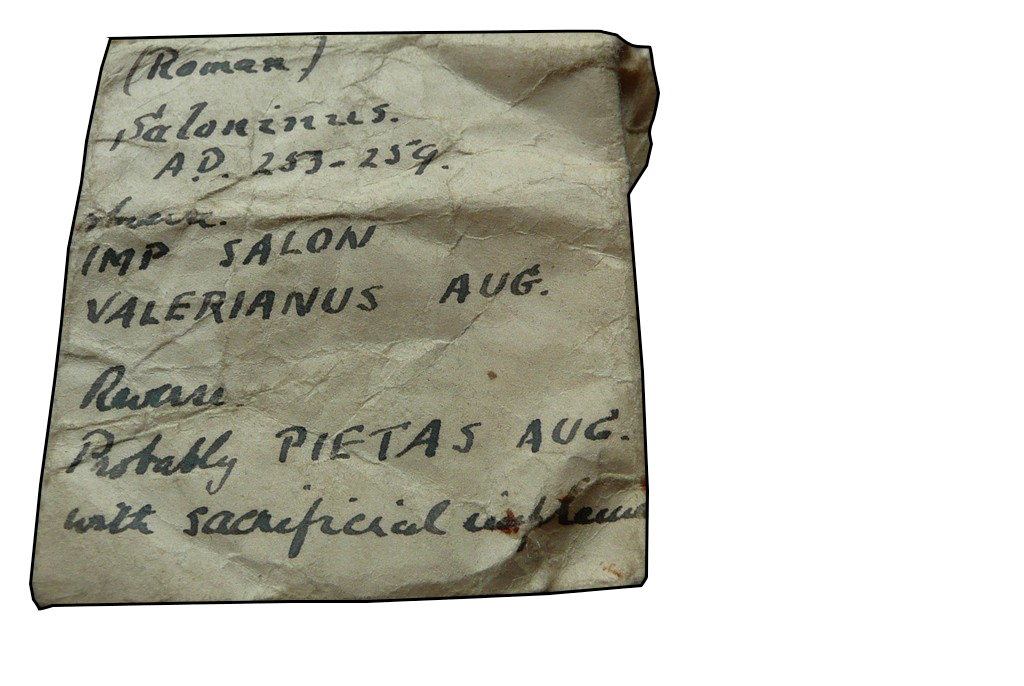 (Roman)
Saloninus.
A.D. 253-259.
IMP SALON
VALERIANUS AUG.
Reverse.
Probably PIETAS AUG.
with sacrificial